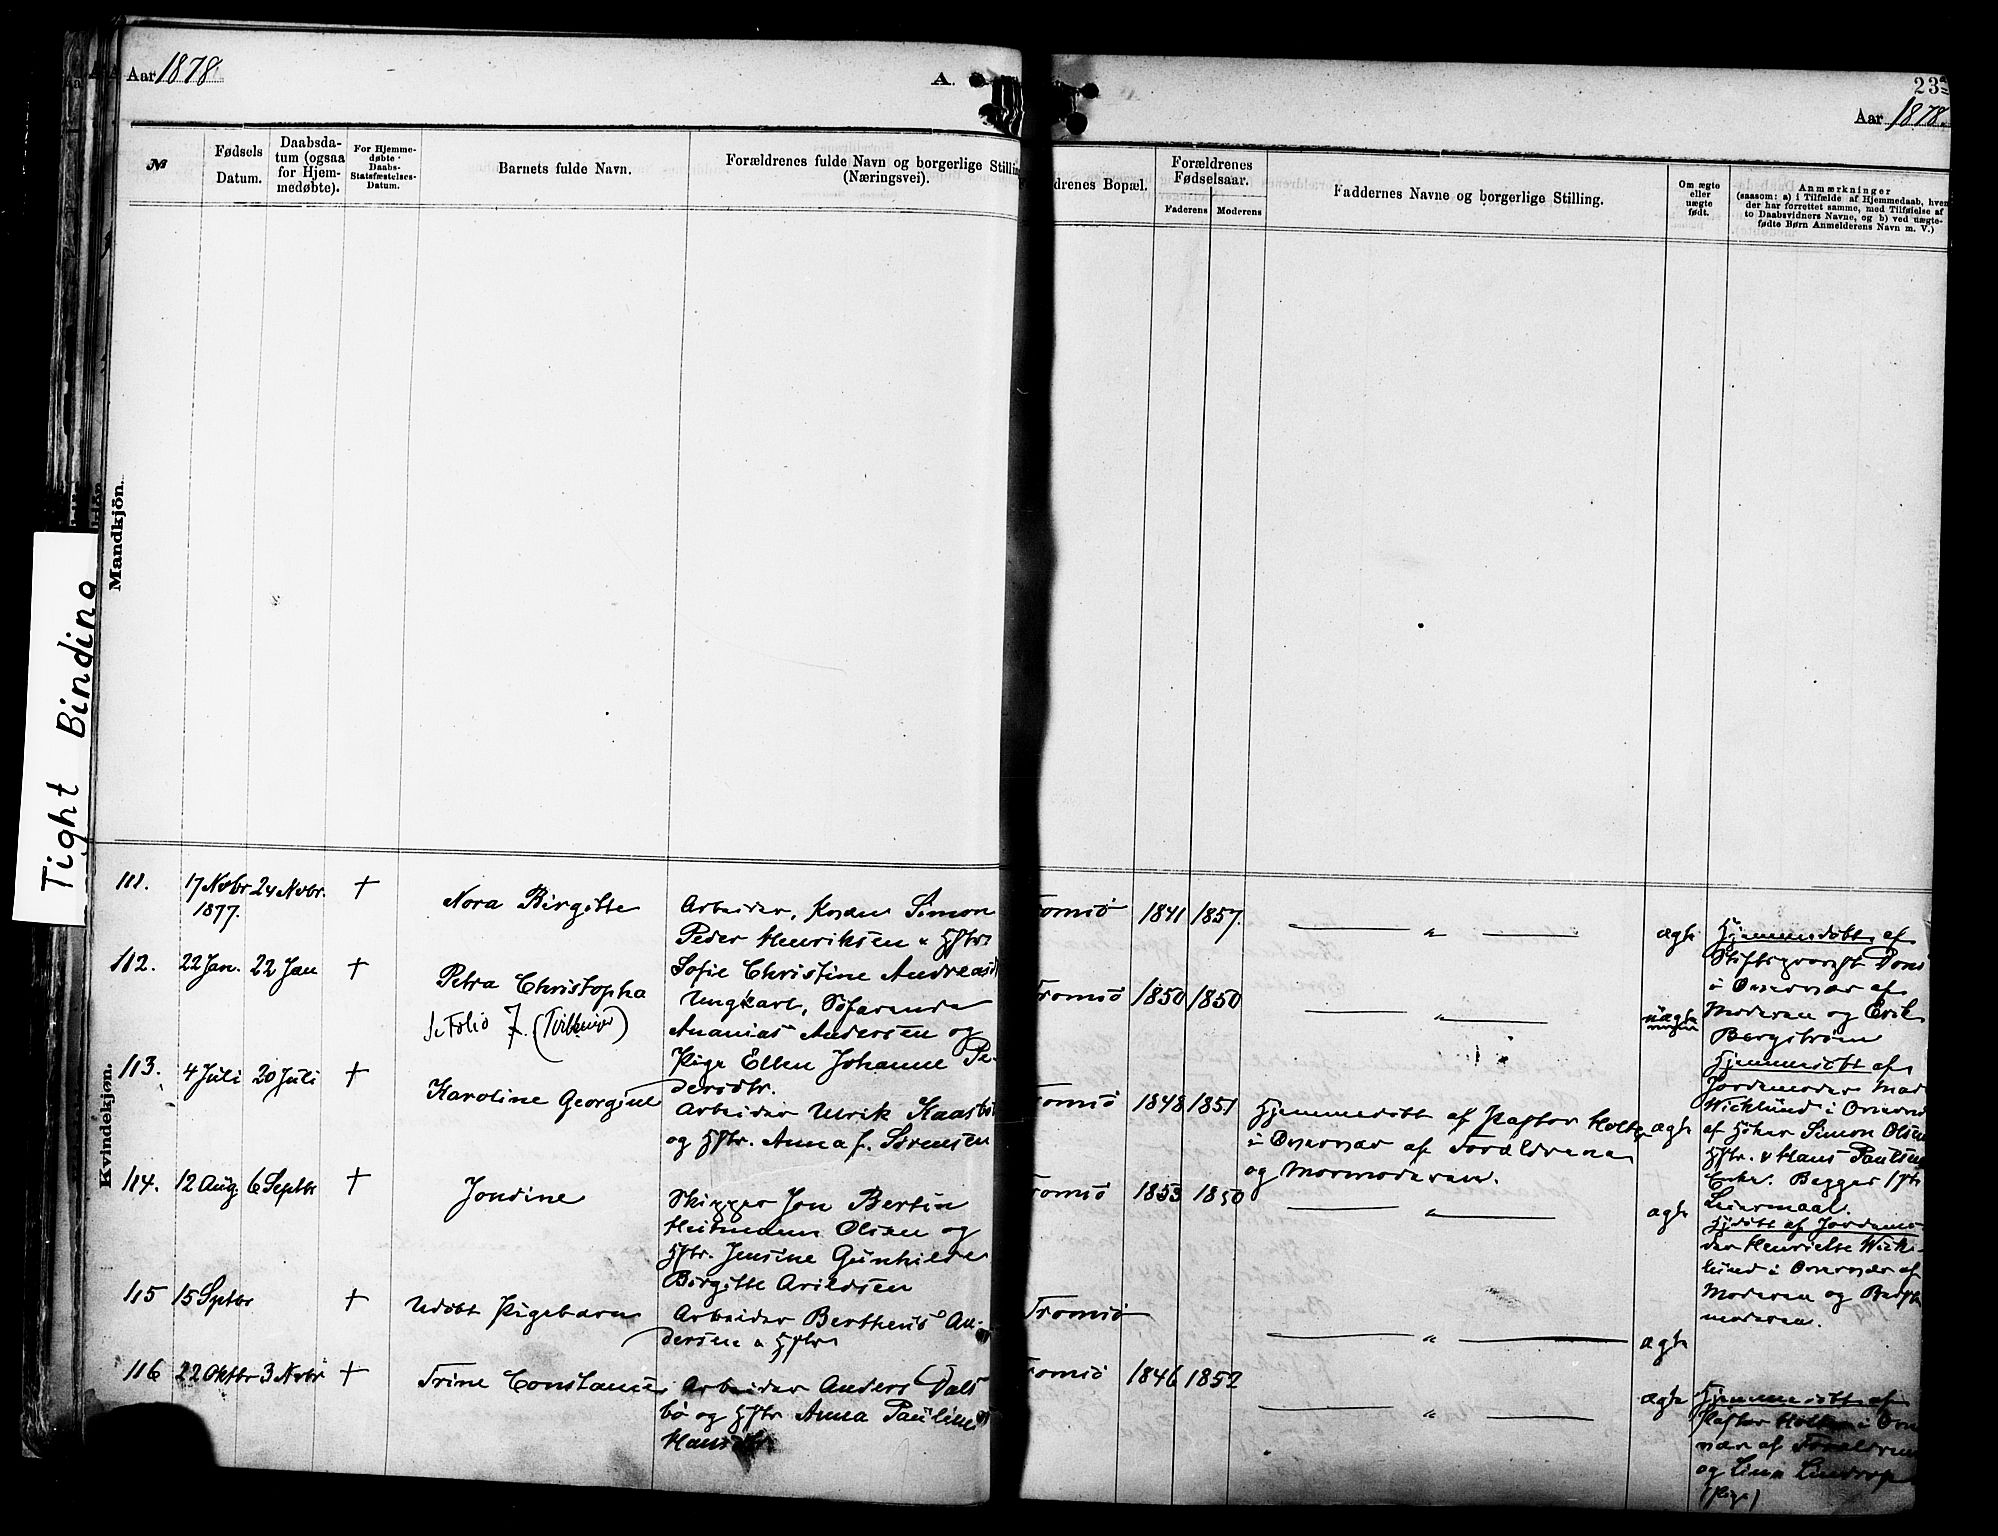 Aar 1878
A.
23
Aar 1878.
№
Fødsels Datum.
Daabsdatum (ogsaa for Hjemmedøbte).
For Hjemmedøbte Daabs-Statsfæstelses-Datum.
Barnets fulde Navn.
Forældrenes fulde Navn og borgerlige Stilling (Næringsvei).
drenes Bopæl.
Forældrenes Fødselsaar.
Faderens
Moderens
Faddernes Navne og borgerlige Stilling.
Om ægte eller uægte født.
Anmærkninger
(saasom: a) i Tilfælde af Hjemmedaab, hvem
der har forrettet samme, med Tilføielse af
to Daabsvidners Navne, og b) ved uægte-
fødte Børn Anmelderens Navn m. V.)
Mandkjön.
Tight Binding
Kvindekjøn.
111. 17 Novbr 1877. 24 Novbr. † Nora Birgitte
Arbeider, Simon
Peder Henriksen & Hstr
Sofie Christine Andreasd
Tromsö 1841 1857. — " — ægte
Hjemmedöbt af
Stiftsprovst
i Overvær af
Moderen og Erik
Bergström
112. 22 Jan. 22 Jan † Petra Christopha
Se Folio 7.
Ungkarl, Söfarende
Ananias Andersen og
Pige Ellen Johanne Pe-
dersdtr.
Tromsö 1850 1850 — " — uægte
Hjemmedöbt af
Jordemoder Mad
Wicklund i Overvær
af Höker Simon Olsen
Hstr. & Hans Paulsen
Enke. Begges 1ste
Leiermaal.
113. 4 Juli 20 Juli † Karoline Georgine
Arbeider Ulrik Kaasbö
og Hstr. Anna f. Sörensen
Tromsö 1848 1851
Hjemmedöbt af Pastor Holte
i Overvær af Forældrene
og Mormoderen.
ægte
114. 12 Aug. 6 Septbr † Jondine
Skipper Jon Bertin
Heitmann Olsen og
Hstr. Jensine Gunhilde
Birgitte Arildsen
Tromsö 1853 1850 — " — ægte
Hjdöbt af Jordemo-
der Henriette Wick-
lund i Overvær af
Moderen og Bedste
moderen.
115 15 Septbr † Udöbt Pigebarn
Arbeider Bertheus An-
dersen & Hstr
Tromsö — " — ægte
116 22 Oktbr 3 Novbr † Trine Constanse
Arbeider Anders Dals
bö og Hstr Anna Pauline
Hansdtr
Tromsö 1846 1852 — " — ægte
Hjemmedöbt af
Pastor Holte i Over
vær af Forældrene
og Lina
(Pige)